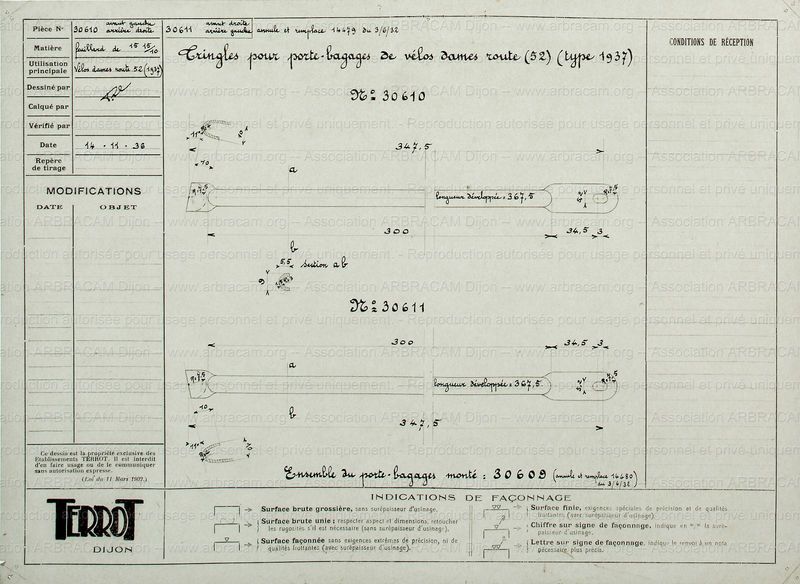 Pièce N° 30610 avant gauche arrière droite 30611 avant droite arrière gauche annule et remplace 14479 du 3/6/32
Matière feuillard de 15 15/10
Utilisation principale Vélos dames route 52 (1937)
Dessiné par
Calqué par
Vérifié par
Date 14 . 11 . 36
Repère de tirage
MODIFICATIONS
DATE OBJET
Ce dessin est la propriété exclusive des
Etablissements TERROT. Il est interdit
d'en faire usage ou de le communiquer
sans autorisation expresse.
(Loi du 11 Mars 1902.)
Tringles pour porte-bagages de vélos dames route (52) (type 1937)
N° 30610
347,5
10
a
longueur développée = 367,5
300
34,5 3
b
5,5 section ab
9
N° 30611
300 34,5 3
a
longueur développée = 367,5
10
b
347,5
Ensemble du porte-bagages monté : 30609 (annule et remplace 14480 du 3/6/32)
CONDITIONS DE RÉCEPTION
TERROT
DIJON
INDICATIONS DE FAÇONNAGE
Surface brute grossière, sans surépaisseur d'usinage.
Surface brute unie ; respecter aspect et dimensions, retoucher
les rugosités s'il est nécessaire (sans surépaisseur d'usinage).
Surface façonnée sans exigences extrêmes de précision, ni de
qualités frottantes (avec surépaisseur d'usinage).
Surface finie, exigences spéciales de précision et de qualités
frottantes (avec surépaisseur d'usinage).
Chiffre sur signe de façonnage, indique en "/" la surépaisseur d'usinage.
Lettre sur signe de façonnage, indique le renvoi à une nota
nécessaire plus précis.
www.arbracam.org – Association ARBRACAM Dijon – Reproduction autorisée pour usage personnel et privé uniquement.